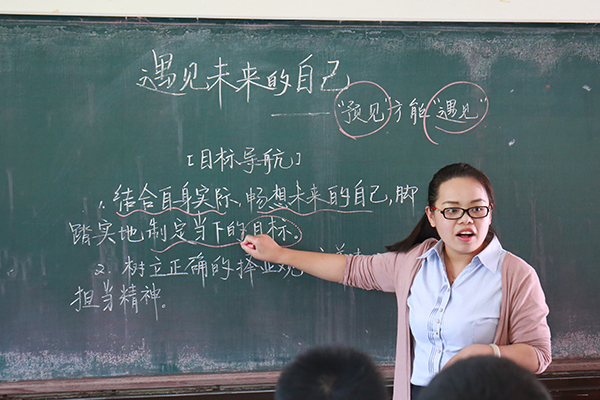 遇见未来的自己
——"预见"才能"遇见"
[目标导航]
1.结合自身实际,畅想未来的自己,脚
踏实地制定当下的目标.
2.树立正确的择业观
担当精神。